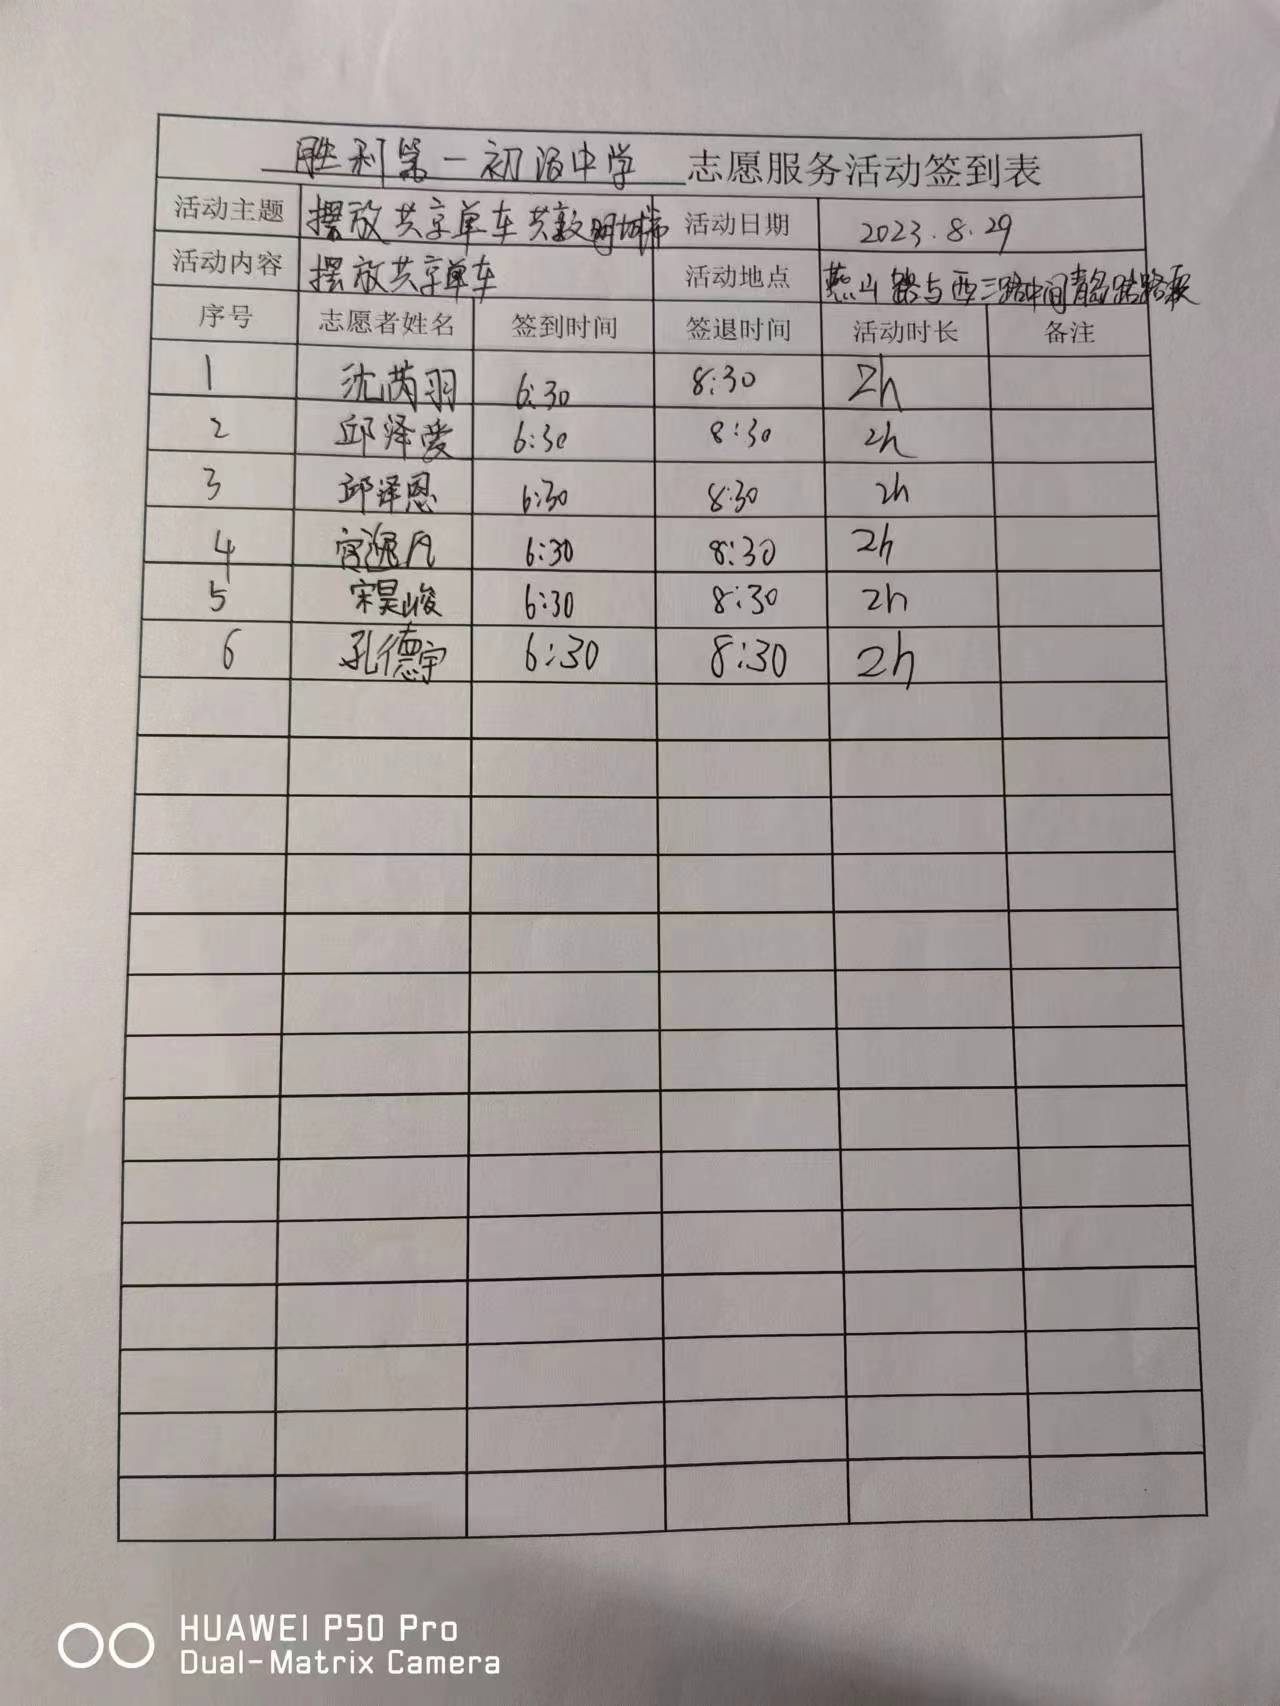 胜利第一初级中学 志愿服务活动签到表
活动主题 摆放共享单车共文明城市 活动日期 2023.8.29
活动内容 摆放共享单车 活动地点 燕山路与西三路中间青岛路路
序号 志愿者姓名 签到时间 签退时间 活动时长 备注
1 沈芮羽 6:30 8:30 2h
2 邱泽爱 6:30 8:30 2h
3 邱泽恩 6:30 8:30 2h
4 宫逸凡 6:30 8:30 2h
5 宋昊峻 6:30 8:30 2h
6 孔德宇 6:30 8:30 2h
HUAWEI P50 Pro
Dual-Matrix Camera